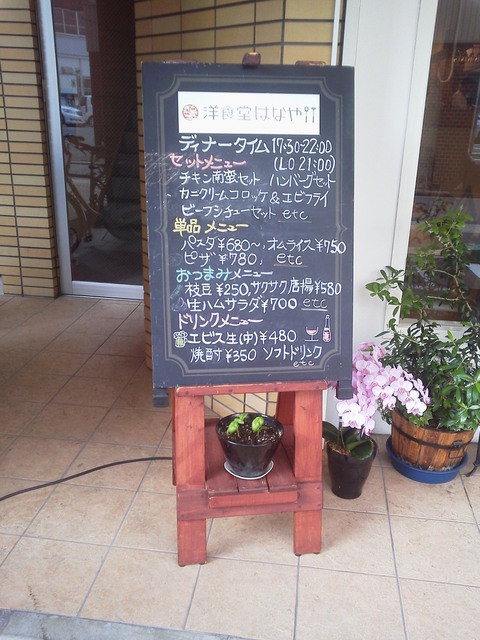 洋食堂はなや
ディナータイム 17:30-22:00
セットメニュー (LO 21:00)
チキン南蛮セット ハンバーグセット
カニクリームコロッケ&エビフライ
ビーフシチューセット etc
単品メニュー
パスタ¥680〜, オムライス¥750
ピザ¥780, etc
おつまみメニュー
枝豆¥250, サクサク唐揚¥580
生ハムサラダ¥700 etc
ドリンクメニュー
エビス生(中)¥480
焼酎¥350 ソフトドリンク
etc